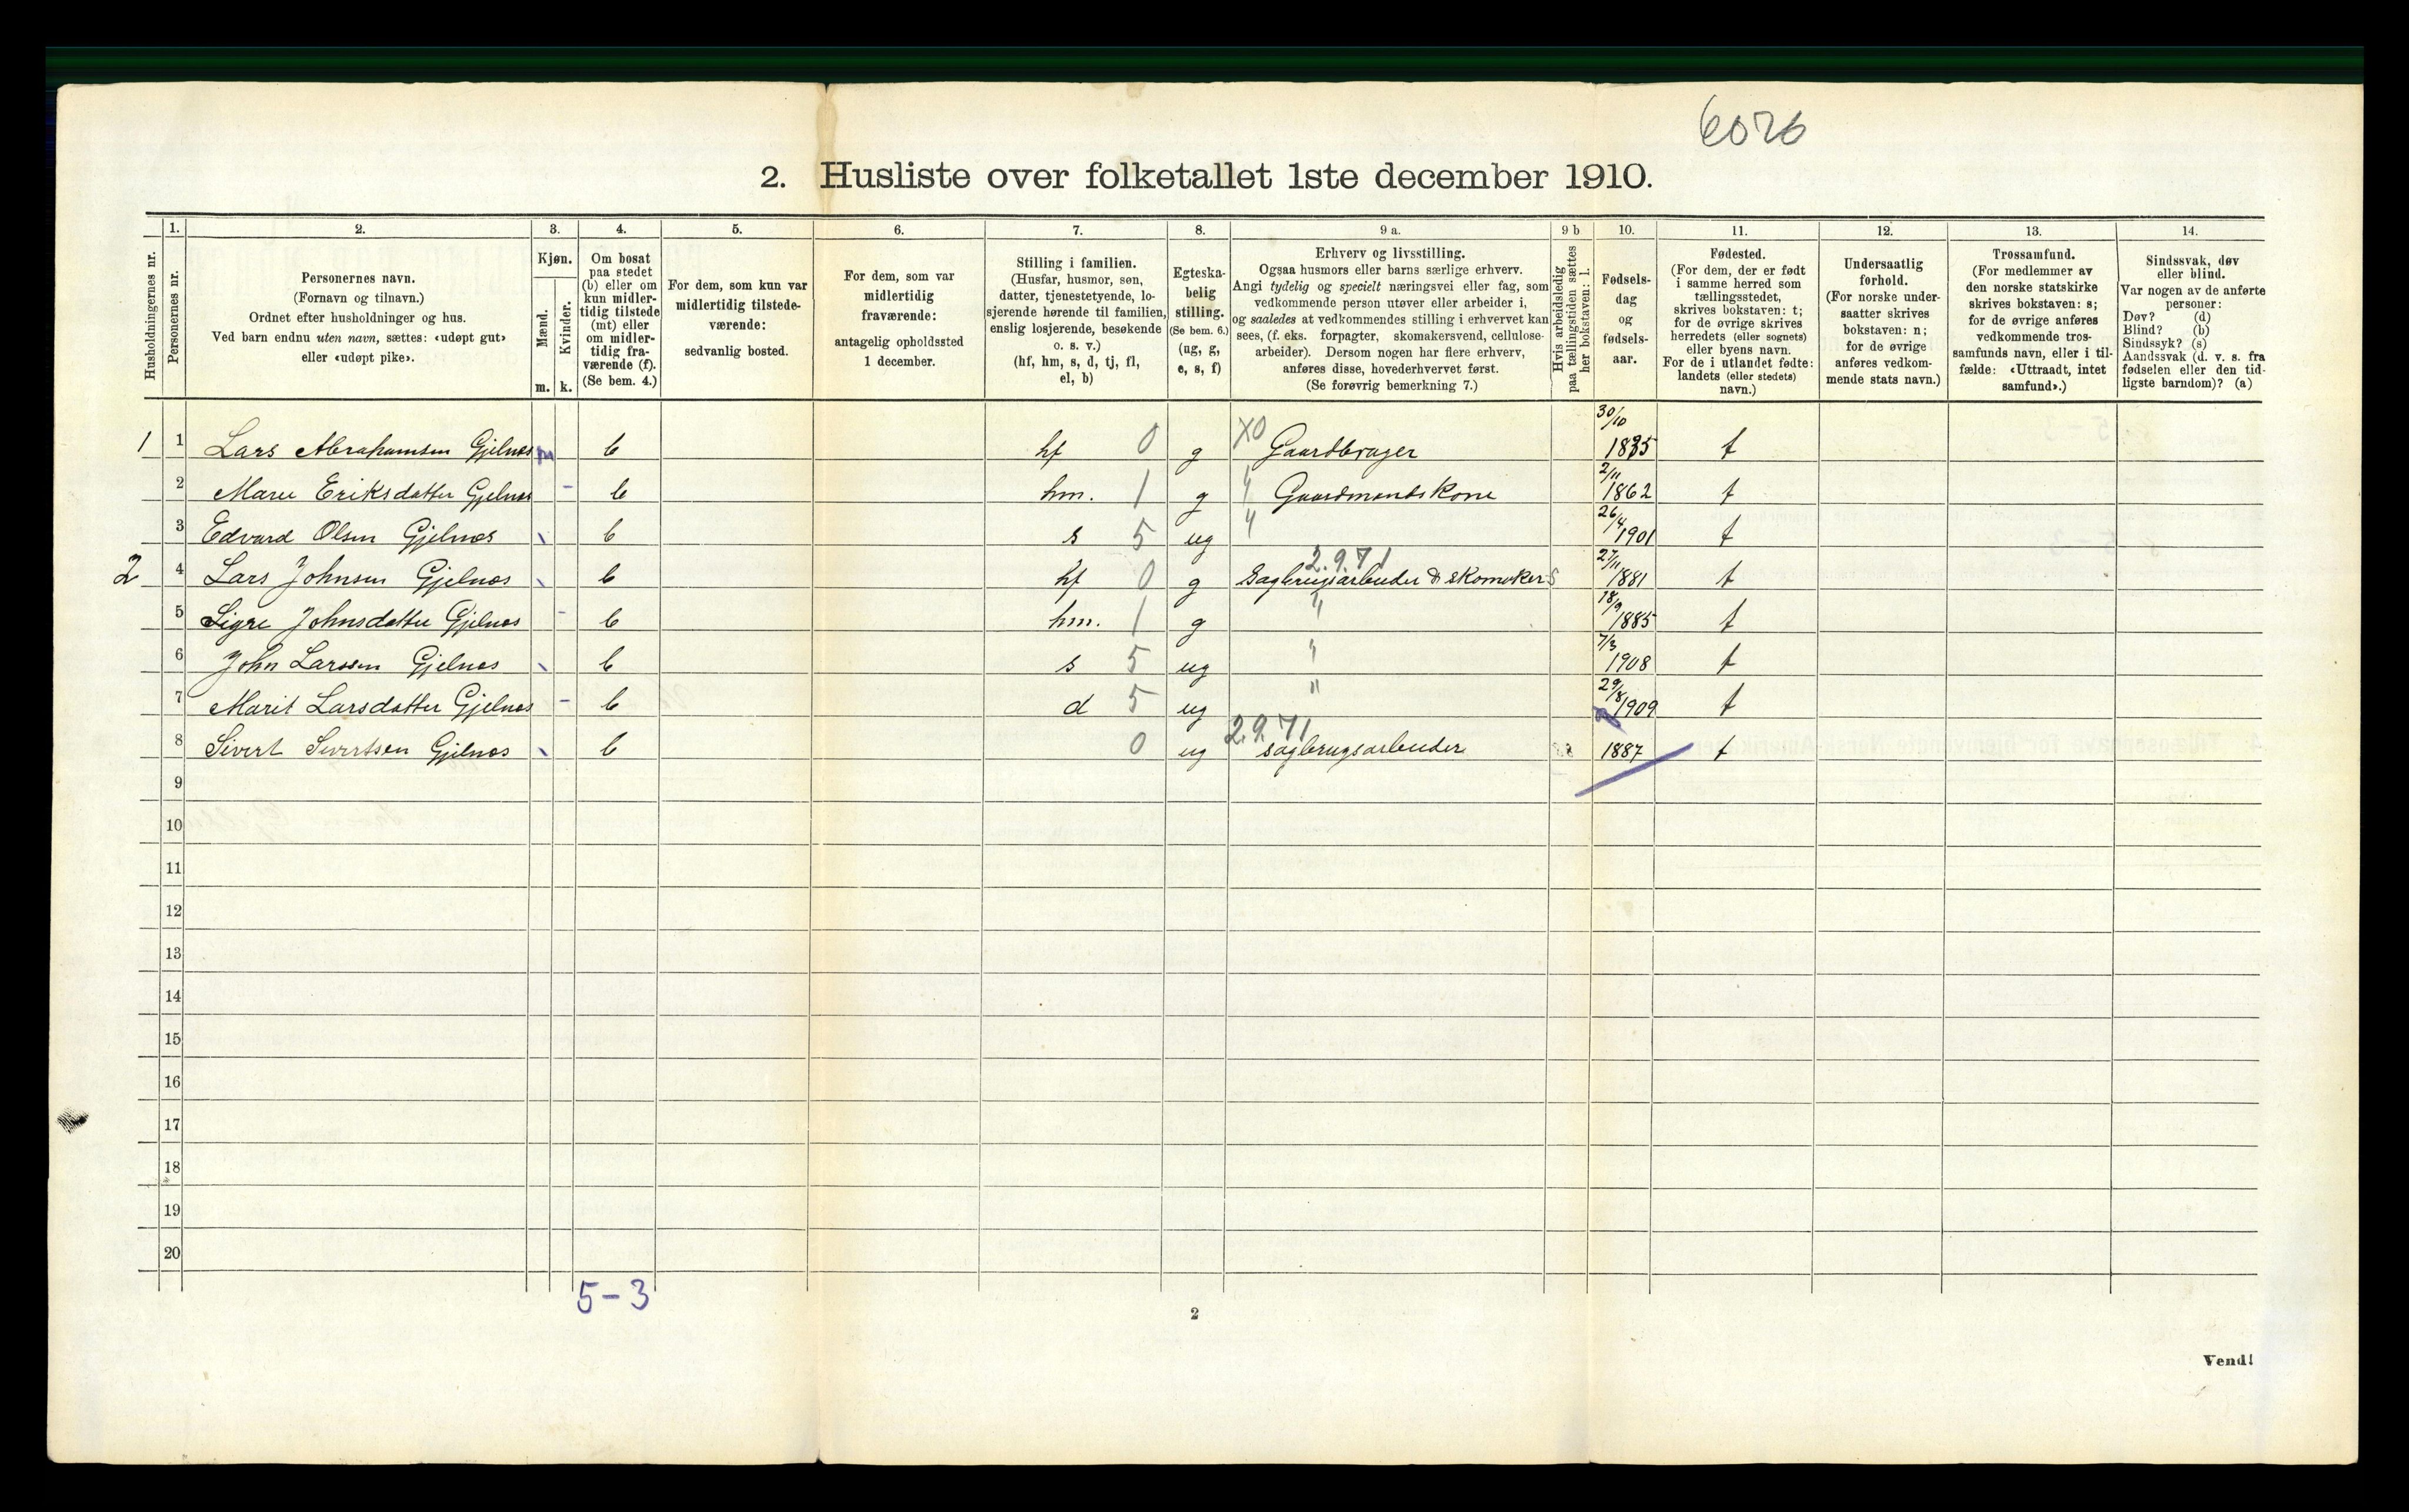 6026
2. Husliste over folketallet 1ste december 1910.
1. 2. 3. 4. 5. 6. 7. 8. 9 a. 9 b 10. 11. 12. 13. 14.
Husholdningernes nr.
Personernes nr.
Personernes navn.
(Fornavn og tilnavn.)
Ordnet efter husholdninger og hus.
Ved barn endnu uten navn, sættes: «udøpt gut»
eller «udøpt pike».
Kjøn.
Mænd.
Kvinder.
m. k.
Om bosat
paa stedet
(b) eller om
kun midler-
tidig tilstede
(mt) eller
om midler-
tidig fra-
værende (f).
(Se bem. 4.)
For dem, som kun var
midlertidig tilstede-
værende:
sedvanlig bosted.
For dem, som var
midlertidig
fraværende:
antagelig opholdssted
1 december.
Stilling i familien.
(Husfar, husmor, søn,
datter, tjenestetyende, lo-
sjerende hørende til familien,
enslig losjerende, besøkende
o. s. v.)
(hf, hm, s, d, tj, fl,
el, b)
Egteska-
belig
stilling.
(Se bem. 6.)
(ug, g,
e, s, f)
Erhverv og livsstilling.
Ogsaa husmors eller barns særlige erhverv.
Angi tydelig og specielt næringsvei eller fag, som
vedkommende person utøver eller arbeider i,
og saaledes at vedkommendes stilling i erhvervet kan
sees, (f. eks. forpagter, skomakersvend, cellulose-
arbeider). Dersom nogen har flere erhverv,
anføres disse, hovederhvervet først.
(Se forøvrig bemerkning 7.)
Hvis arbeidsledig
paa tællingstiden sættes
her bokstaven: l.
Fødsels-
dag
og
fødsels-
aar.
Fødested.
(For dem, der er født
i samme herred som
tællingsstedet,
skrives bokstaven: t;
for de øvrige skrives
herredets (eller sognets)
eller byens navn.
For de i utlandet fødte:
landets (eller stedets)
navn.)
Undersaatlig
forhold.
(For norske under-
saatter skrives
bokstaven: n;
for de øvrige
anføres vedkom-
mende stats navn.)
Trossamfund.
(For medlemmer av
den norske statskirke
skrives bokstaven: s;
for de øvrige anføres
vedkommende tros-
samfunds navn, eller i til-
fælde: «Uttraadt, intet
samfund».)
Sindssvak, døv
eller blind.
Var nogen av de anførte
personer:
Døv? (d)
Blind? (b)
Sindssyk? (s)
Aandssvak (d. v. s. fra
fødselen eller den tid-
ligste barndom)? (a)
1 1 Lars Abrahamsen Gjelnes m b hf 0 g X0 Gaardbruger 30/10 1835 t
2 Marie Eriksdatter Gjelnes - b hm. 1 g " Gaardmandskone 2/11 1862 t
3 Edvard Olsen Gjelnes b s 5 ug " 26/4 1901 t
2 4 Lars Johnsen Gjelnes b hf 0 g 2.9.71 Sagbrugsarbeider & skomaker s 27/11 1881 t
5 Sigre Johnsdatter Gjelnes - b hm. 1 g " 18/9 1885 t
6 John Larssen Gjelnes b s 5 ug " 7/3 1908 t
7 Marit Larsdatter Gjelnes - b d 5 ug " 29/8 1909 t
8 Sivert Sivertsen Gjelnes b 0 ug 2.9.71 sagbrugsarbeider 1887 t
9
10
11
12
13
14
15
16
17
18
19
20
5-3
2
Vend!